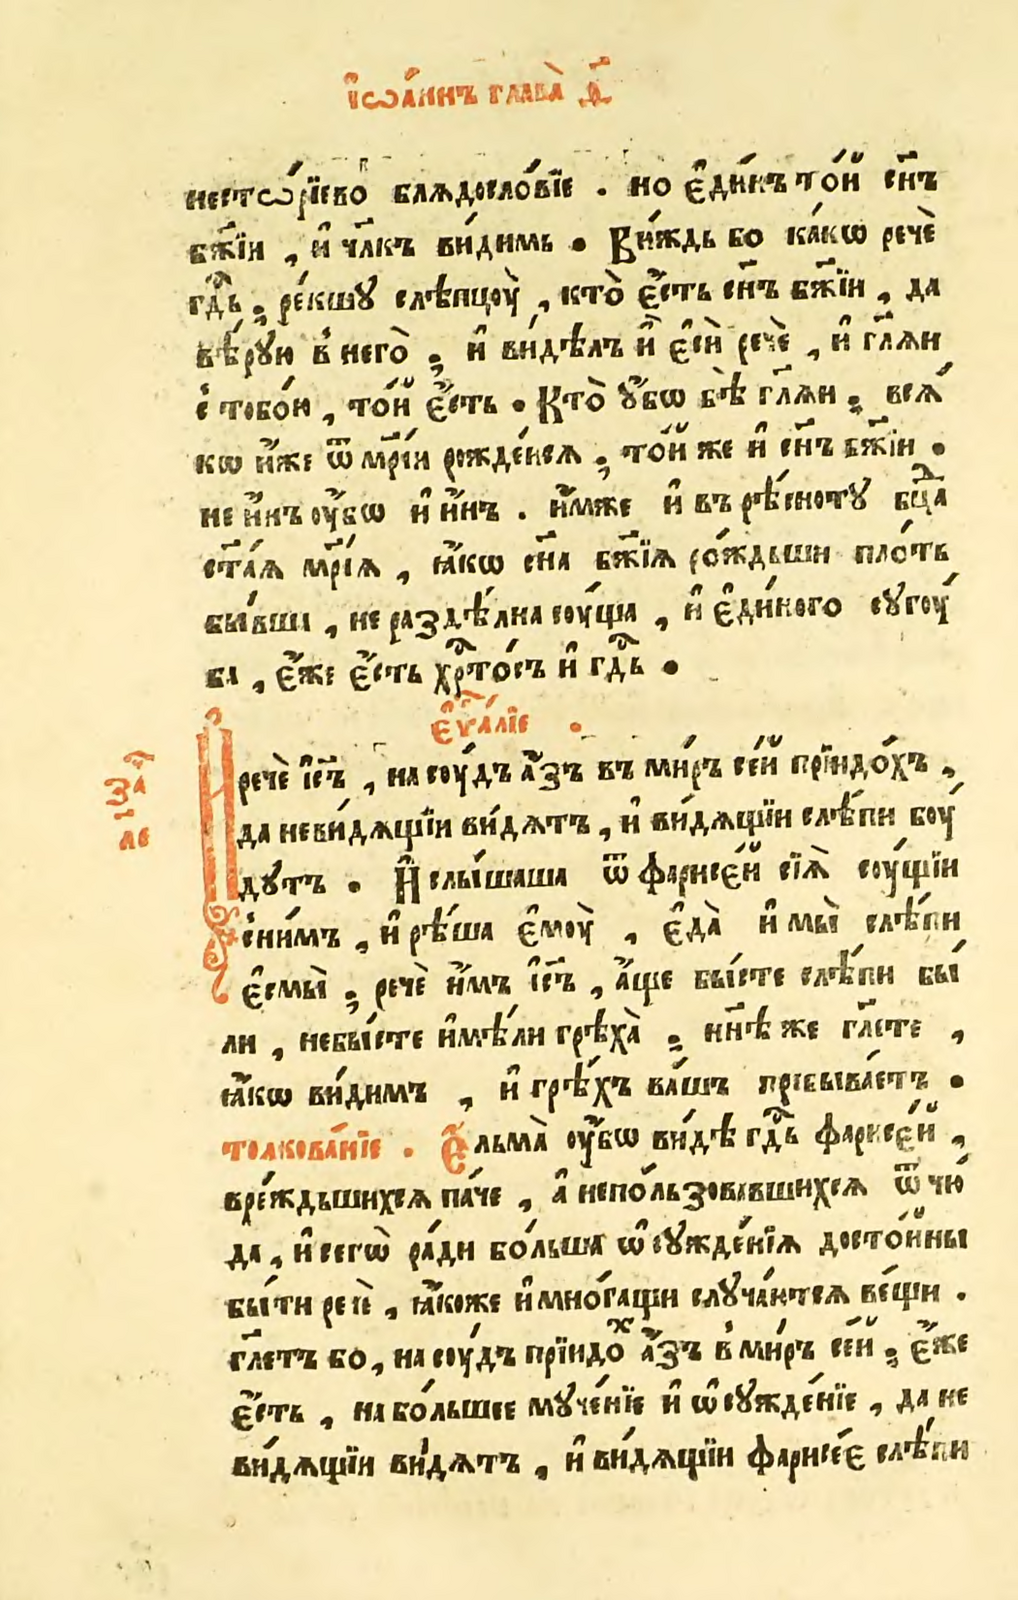 і҆ѡа́ннъ глава̀ д҃
нестѡ́рїево блѧдосло́вїе . но є҆ди́нъ то́й сн҃ъ
бж҃їи , и҆ чл҃къ ви́димь . Ви́ждь бо ка́кѡ речѐ
гдⷭ҇ь , ре́кшꙋ слѣпцоу̀ , кто̀ є҆́сть сн҃ъ бж҃їи , да
вѣ́рꙋю в̾ него̀ ; и҆ ви́дѣлъ и҆̀ є҆сѝ речѐ , и҆ гл҃ѧи
с̾ тобо́ю , то́й є҆́сть . Кто̀ ᲂу҆́бѡ бѣ гл҃ѧи ; всѧ́
кѡ и҆́же ѿ мр҃і́и рожде́исѧ , то́й же и҆ сн҃ъ бж҃їи .
не и҆́нъ ᲂу҆́бѡ и҆ и҆́нъ . и҆́мже и҆ въ рѣ́снотꙋ бцⷣа
ст҃а́ѧ мр҃і́ѧ , ꙗ҆́кѡ сн҃а бж҃їѧ ро́ждьши пло́ть
бы́вша , не раздѣ́лна соу́ща , и҆ є҆ди́ного сꙋгоу́
ба , є҆́же є҆́сть хрⷭ҇то́съ и҆ гдⷭ҇ь .
є҆ѵⷢ҇а́лїе .
заⷱ҇
ле
И речѐ і҆с҃ъ , на соу́дъ а҆́зъ въ ми́ръ се́й прїидо́хъ ,
да неви́дѧщїи ви́дѧтъ , и҆ ви́дѧщїи слѣ́пи боу́
дꙋтъ . И҆ слы́шаша ѿ фарисе́й сїѧ̀ соу́щїи
с̾ни́мъ , и҆ рѣ́ша є҆моу̀ , є҆да̀ и҆ мы̀ слѣ́пи
є҆смы̀ ; речѐ и҆̀мъ і҆с҃ъ , а҆́ще бы́сте слѣ́пи бы́
ли , небы́сте и҆мѣ́ли грѣха̀ ; нн҃ѣ же гл҃ете ,
ꙗ҆́кѡ ви́димъ , и҆ грѣ́хъ ва́шъ пребыва́етъ .
толкова́нїе . Є҆льма̀ ᲂу҆́бѡ ви́дѣ гдⷭ҇ь фарисе́й ,
вре́ждьшихсѧ па́че , а҆ непо́льзовавшихсѧ ѿ чю́
да , и҆ сегѡ̀ ра́ди бо́льша ѡ҆сꙋжде́нїѧ досто́йны
бы́ти речѐ , ꙗ҆́коже и҆ мно́гащи слꙋча́ютсѧ ве́щи .
гл҃етъ бо , на соу́дъ прїидоⷯ а҆́зъ в̾ ми́ръ се́й ; є҆́же
є҆́сть , на бо́льшее мꙋче́нїе и҆ ѡ҆сꙋжде́нїе , да не
ви́дѧщїи ви́дѧтъ , и҆ ви́дѧщїи фарисе́є слѣ́пи